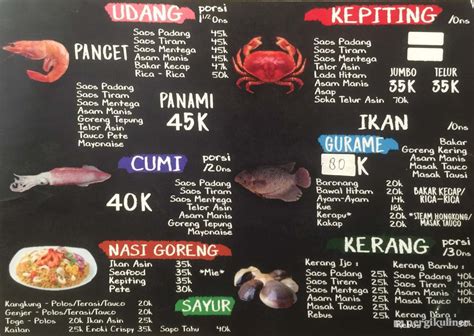 UDANG porsi 1/2 Ons
PANCET
Saos Padang 45k
Saos Tiram 45k
Saos Mentega 45k
Asam Manis 45k
Bakar Kecap 47k
Rica - Rica 50k
PANAMI
45K
Saos Padang
Saos Tiram
Saos Mentega
Asam Manis
Goreng Tepung
Telor Asin
Tauco Pete
Mayonaise
CUMI porsi /2.0ns
40K
Saos Padang
Saos Tiram
Saos Mentega
Asam Manis
Goreng Tepung
Telor Asin
Tauco Pete
Mayonaise
NASI GORENG
Ikan Asin 35k
Seafood 35k
Kepiting 35k
Pete 30k
*Mie*
SAYUR
Kangkung - Polos/Terasi/Tauco 20k
Genjer - Polos/Terasi/Tauco 20k
Toge - Polos / Ikan Asin 20k
Kailan 25k Enoki Crispy 35k Sapo Tahu 40k
KEPITING /Ons
Saos Padang
Saos Tiram
Saos Mentega
Telor Asin
Lada Hitam
Asam Manis
Asap
Soka Telur Asin /70k
JUMBO 35K
TELUR 35K
IKAN
GURAME
80 K
Bakar
Goreng Kering
Asam Manis
Masak Tauco
Masak Tausi
Baronang
Bawal Hitam 20k
Ayam-Ayam 14k
Kue 18k
Kerapu*
Kakap*
BAKAR KECAP/
RICA-RICA
*STEAM HONGKONG/
MASAK TAUCO
KERANG porsi /3 Ons
Kerang Ijo :
Saos Padang 25k
Saos Tiram 25k
Saos Mentega 25k
Asam Manis 25k
Tauco 25k
Rebus 25k
Kerang Bambu :
Saos Padang 40k
Saos Tiram 40k
Saos Mentega 40k
Asam Manis 40k
Tauco
Rebus
Kerang Dara